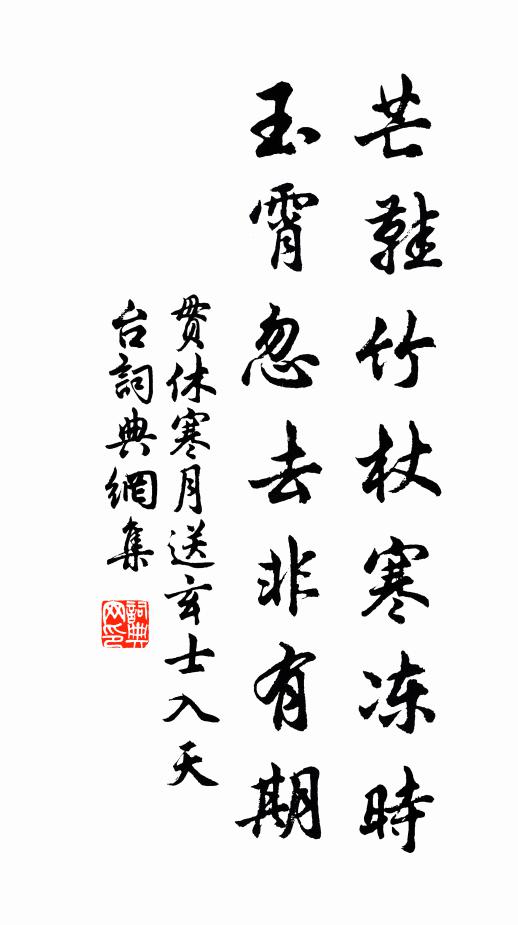 芒鞋竹杖寒冻時
玉霄忽去非有期
贯休寒月送玄士入天
台詞典網集
詞典网印